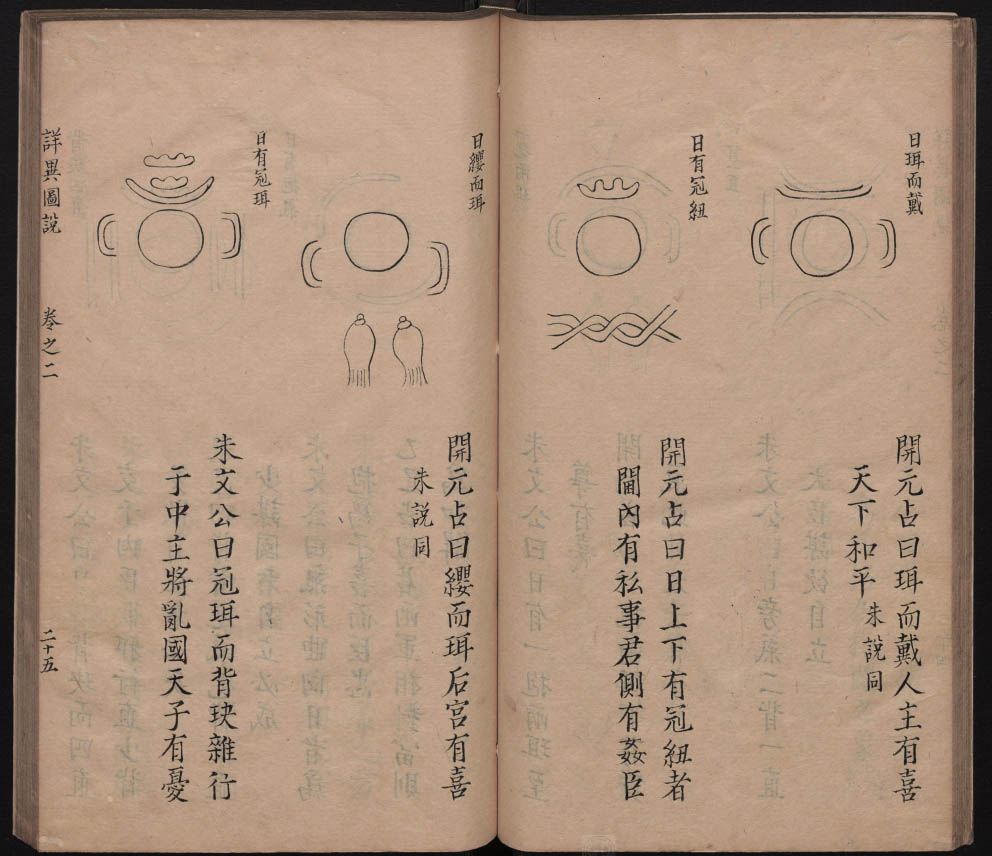 日珥而戴
開元占曰珥而戴人主有喜
天下和平朱說同
日有冠紐
開元占曰日上下有冠紐者
閫內有私事君側有姦臣
日纓而珥
開元占曰纓而珥后宮有喜
朱說同
日有冠珥
朱文公曰冠珥而背玦雜行
于中主將亂國天子有憂
詳異圖說
卷之二
二十五